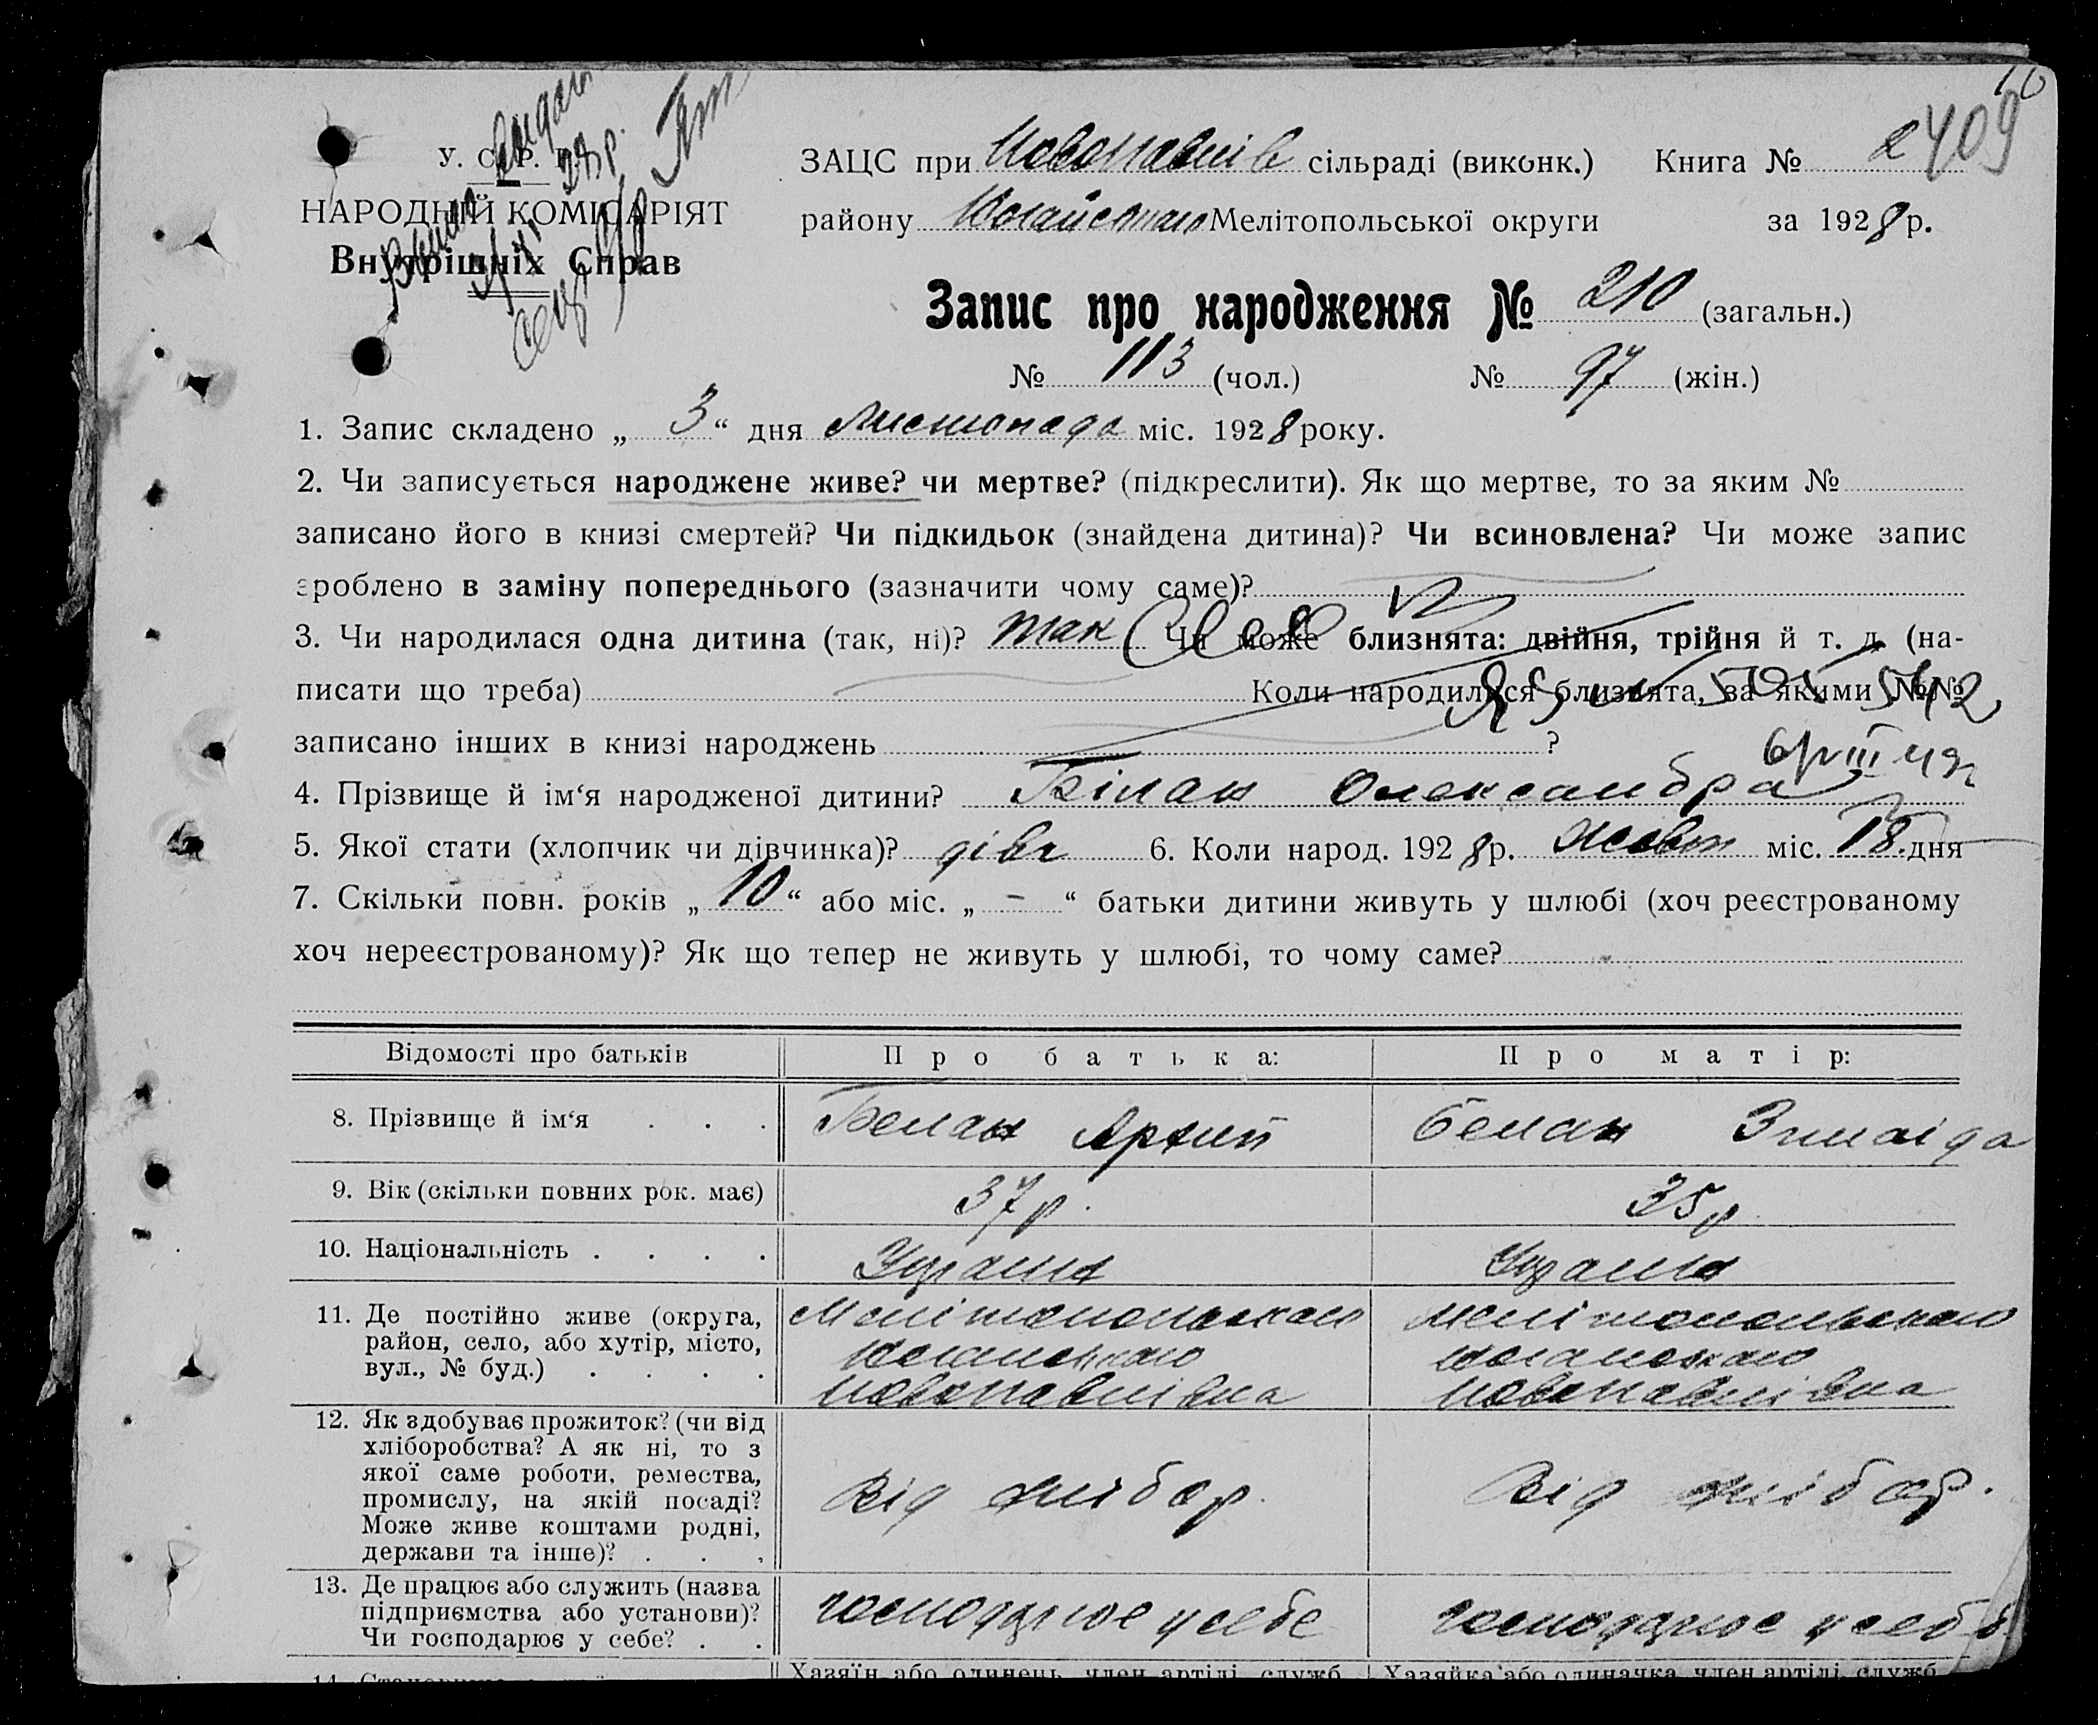 409
У. С. Р. Р.
НАРОДНІЙ КОМІСАРІЯТ
Внутрішніх Справ
ЗАЦС при Новопавлів сільраді (виконк.) Книга № 2
району Ногайського Мелітопольської округи за 1928 р.
Запис про народження № 210 (загальн.)
№ 113 (чол.) № 97 (жін.)
1. Запис складено „ 3 “ дня Листопада міс. 1928 року.
2. Чи записується народжене живе? чи мертве? (підкреслити). Як що мертве, то за яким №
записано його в книзі смертей? Чи підкидьок (знайдена дитина)? Чи всиновлена? Чи може запис
зроблено в заміну попереднього (зазначити чому саме)?
3. Чи народилася одна дитина (так, ні)? так Чи може близнята: двійня, трійня й т. д. (на-
писати що треба) Коли народилися близнята, за якими №№
записано інших в книзі народжень ?
4. Прізвище й ім‘я народженої дитини? Білан Олександра
5. Якої стати (хлопчик чи дівчинка)? дівч 6. Коли народ. 1928 р. Жовт міс. 18 дня
7. Скільки повн. років „ 10 “ або міс. „ – “ батьки дитини живуть у шлюбі (хоч реєстрованому
хоч нереєстрованому)? Як що тепер не живуть у шлюбі, то чому саме?
Відомості про батьків Про батька: Про матір:
8. Прізвище й ім‘я . . . Белан Архип Белан Зинаіда
9. Вік (скільки повних рок. має) 37 р. 35 р.
10. Національність . . . . Украин Украин
11. Де постійно живе (округа, Мелітопольського Мелітопольського
район, село, або хутір, місто, Ногайського Ногайського
вул., № буд.) . . . . Новопавлівка Новопавлівка
12. Як здобуває прожиток? (чи від
хліборобства? А як ні, то з
якої саме роботи, ремества,
промислу, на якій посаді? Від хлібор. Від хлібор.
Може живе коштами родні,
держави та інше)? . . .
13. Де працює або служить (назва
підприємства або установи)? господарює у себе господарює у себе
Чи господарює у себе? . .
Хазяїн або одинець, член артілі, служб. Хазяйка або одиначка, член артілі, служб.